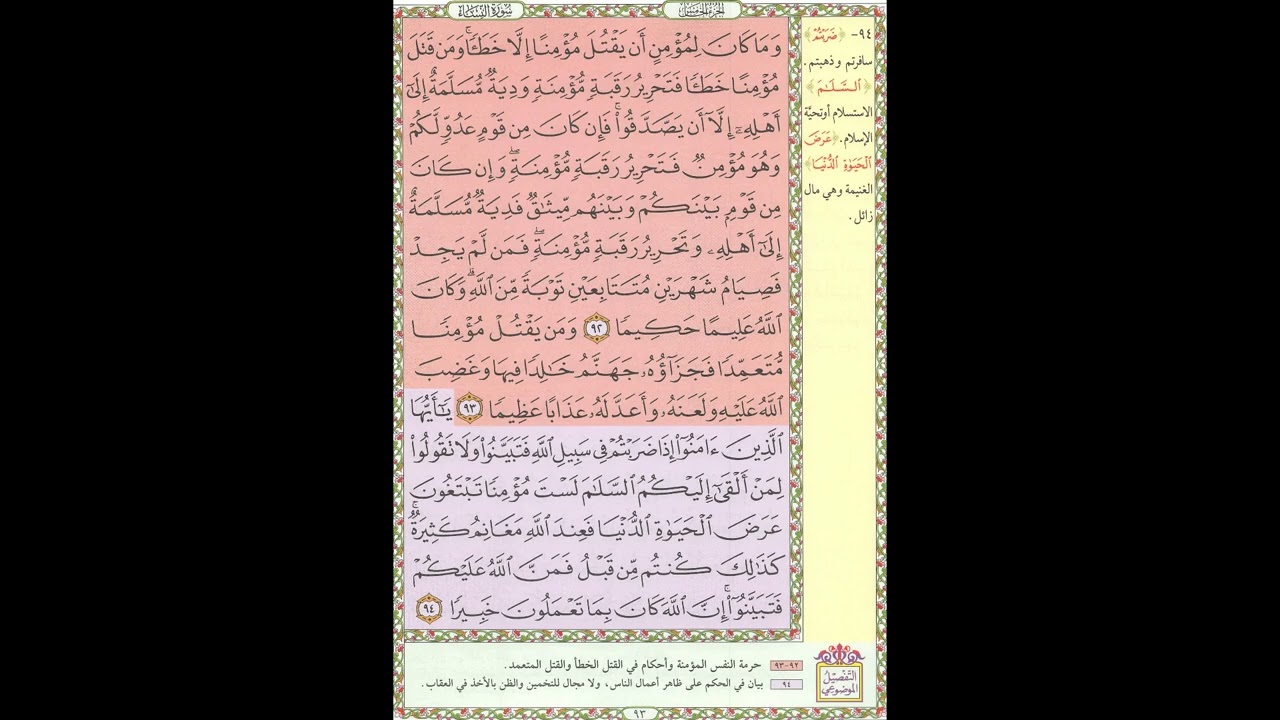 سُورَةُ النِّسَاءِ
الجُزْءُ الخَامِسُ
وَمَا كَانَ لِمُؤْمِنٍ أَن يَقْتُلَ مُؤْمِنًا إِلَّا خَطَـًٔا ۚ وَمَن قَتَلَ
مُؤْمِنًا خَطَـًٔا فَتَحْرِيرُ رَقَبَةٍ مُّؤْمِنَةٍ وَدِيَةٌ مُّسَلَّمَةٌ إِلَىٰٓ
أَهْلِهِۦٓ إِلَّآ أَن يَصَّدَّقُوا۟ ۚ فَإِن كَانَ مِن قَوْمٍ عَدُوٍّ لَّكُمْ
وَهُوَ مُؤْمِنٌ فَتَحْرِيرُ رَقَبَةٍ مُّؤْمِنَةٍ ۖ وَإِن كَانَ
مِن قَوْمٍۭ بَيْنَكُمْ وَبَيْنَهُم مِّيثَـٰقٌ فَدِيَةٌ مُّسَلَّمَةٌ
إِلَىٰٓ أَهْلِهِۦ وَتَحْرِيرُ رَقَبَةٍ مُّؤْمِنَةٍ ۖ فَمَن لَّمْ يَجِدْ
فَصِيَامُ شَهْرَيْنِ مُتَتَابِعَيْنِ تَوْبَةً مِّنَ ٱللَّهِ ۗ وَكَانَ
ٱللَّهُ عَلِيمًا حَكِيمًا ٩٢ وَمَن يَقْتُلْ مُؤْمِنًا
مُّتَعَمِّدًا فَجَزَآؤُهُۥ جَهَنَّمُ خَـٰلِدًا فِيهَا وَغَضِبَ
ٱللَّهُ عَلَيْهِ وَلَعَنَهُۥ وَأَعَدَّ لَهُۥ عَذَابًا عَظِيمًا ٩٣ يَـٰٓأَيُّهَا
ٱلَّذِينَ ءَامَنُوٓا۟ إِذَا ضَرَبْتُمْ فِى سَبِيلِ ٱللَّهِ فَتَبَيَّنُوا۟ وَلَا تَقُولُوا۟
لِمَنْ أَلْقَىٰٓ إِلَيْكُمُ ٱلسَّلَـٰمَ لَسْتَ مُؤْمِنًا تَبْتَغُونَ
عَرَضَ ٱلْحَيَوٰةِ ٱلدُّنْيَا فَعِندَ ٱللَّهِ مَغَانِمُ كَثِيرَةٌ ۚ
كَذَٰلِكَ كُنتُم مِّن قَبْلُ فَمَنَّ ٱللَّهُ عَلَيْكُمْ
فَتَبَيَّنُوٓا۟ ۚ إِنَّ ٱللَّهَ كَانَ بِمَا تَعْمَلُونَ خَبِيرًا ٩٤
٩٤- ﴿ضَرَبْتُمْ﴾
سافرتم وذهبتم.
﴿ٱلسَّلَـٰمَ﴾
الاستسلام أو تحيَّة
الإسلام. ﴿عَرَضَ
ٱلْحَيَوٰةِ ٱلدُّنْيَا﴾
الغنيمة وهي مال
زائل.
التَّفصِيلُ
الموضُوعي
٩٢-٩٣ حرمة النفس المؤمنة وأحكام في القتل الخطأ والقتل المتعمد.
٩٤ بيان في الحكم على ظاهر أعمال الناس، ولا مجال للتخمين والظن بالأخذ في العقاب.
٩٣